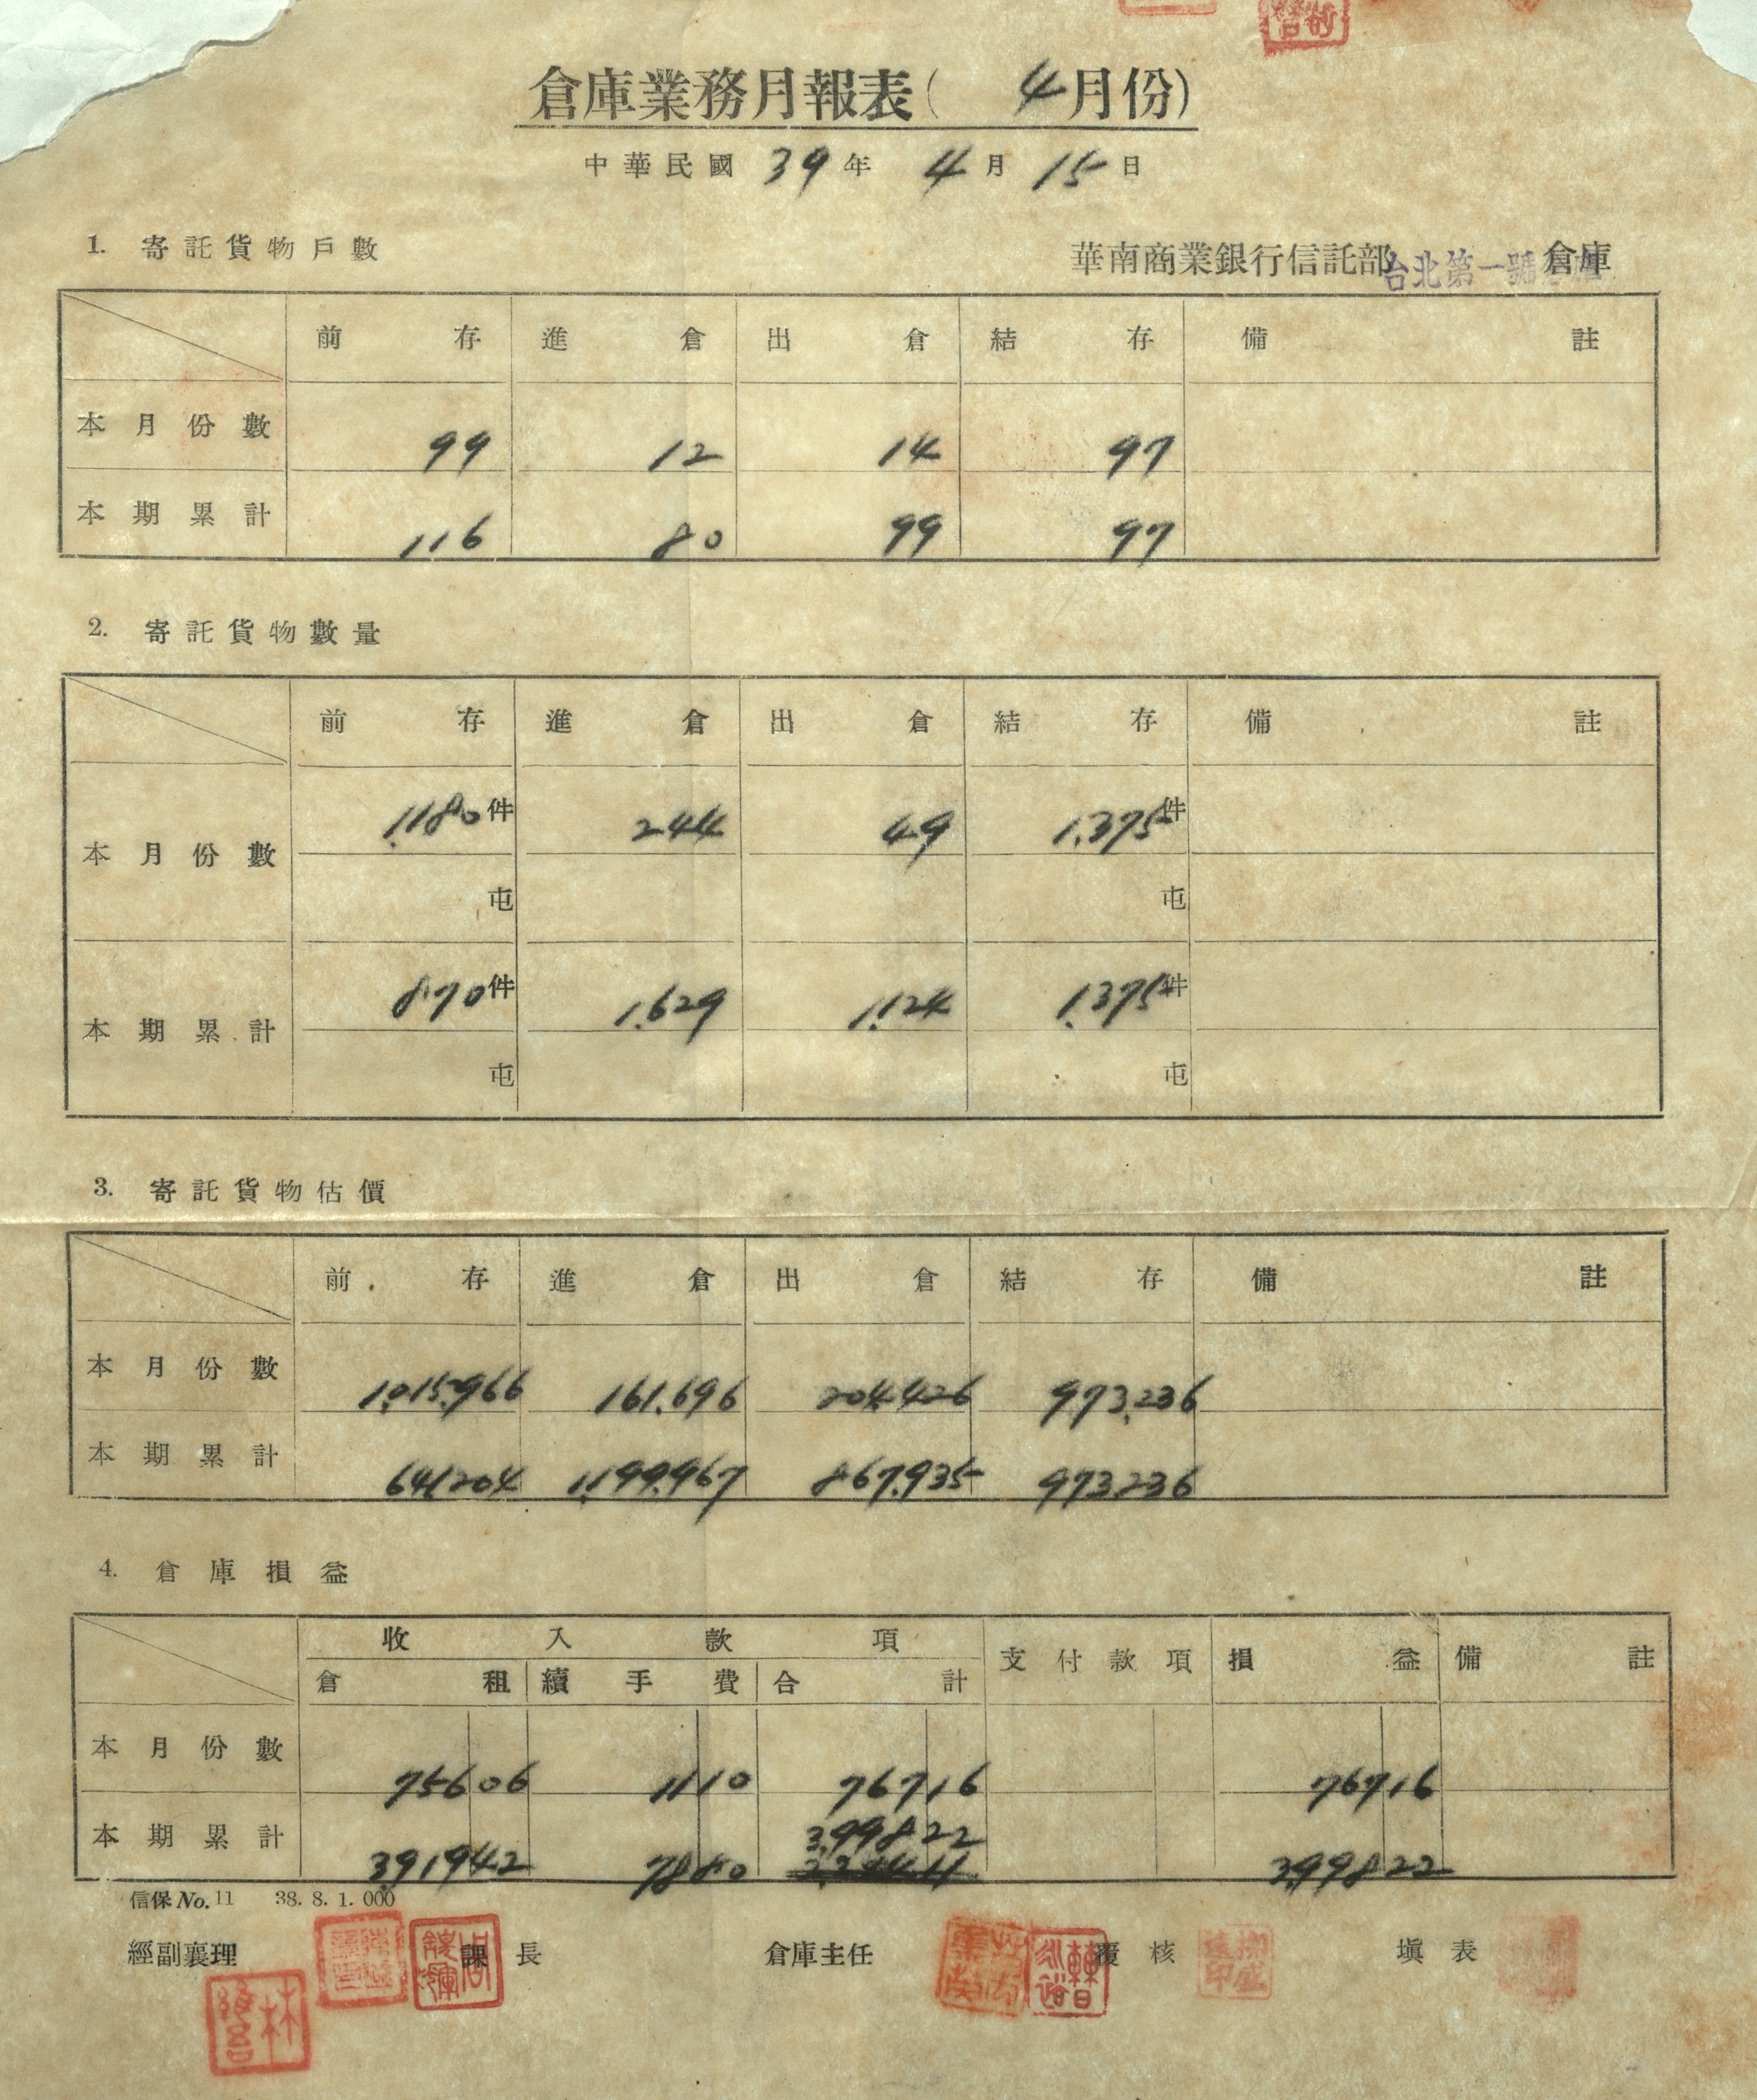 倉庫業務月報表( 4月份)
中華民國 39年 4月 15日
1. 寄託貨物戶數
華南商業銀行信託部台北第一號倉庫 倉庫
前存 進倉 出倉 結存 備註
本月份數 99 12 14 97
本期累計 116 80 99 97
2. 寄託貨物數量
前存 進倉 出倉 結存 備註
本月份數 1.180件 244 49 1.375件
屯 屯
本期累計 870件 1.629 1.124 1.375件
屯 屯
3. 寄託貨物估價
前存 進倉 出倉 結存 備註
本月份數 1.015.966 161.696 204.426 973.236
本期累計 641204 1.199.967 867.935 973236
4. 倉庫損益
收入款項 支付款項 損益 備註
倉租 續手費 合計
本月份數 75606 1110 76716 76716
3.99822
本期累計 391942 7880 3.99822
信保No.11 38.8.1.000
經副襄理 課長 倉庫主任 覆核 塡表